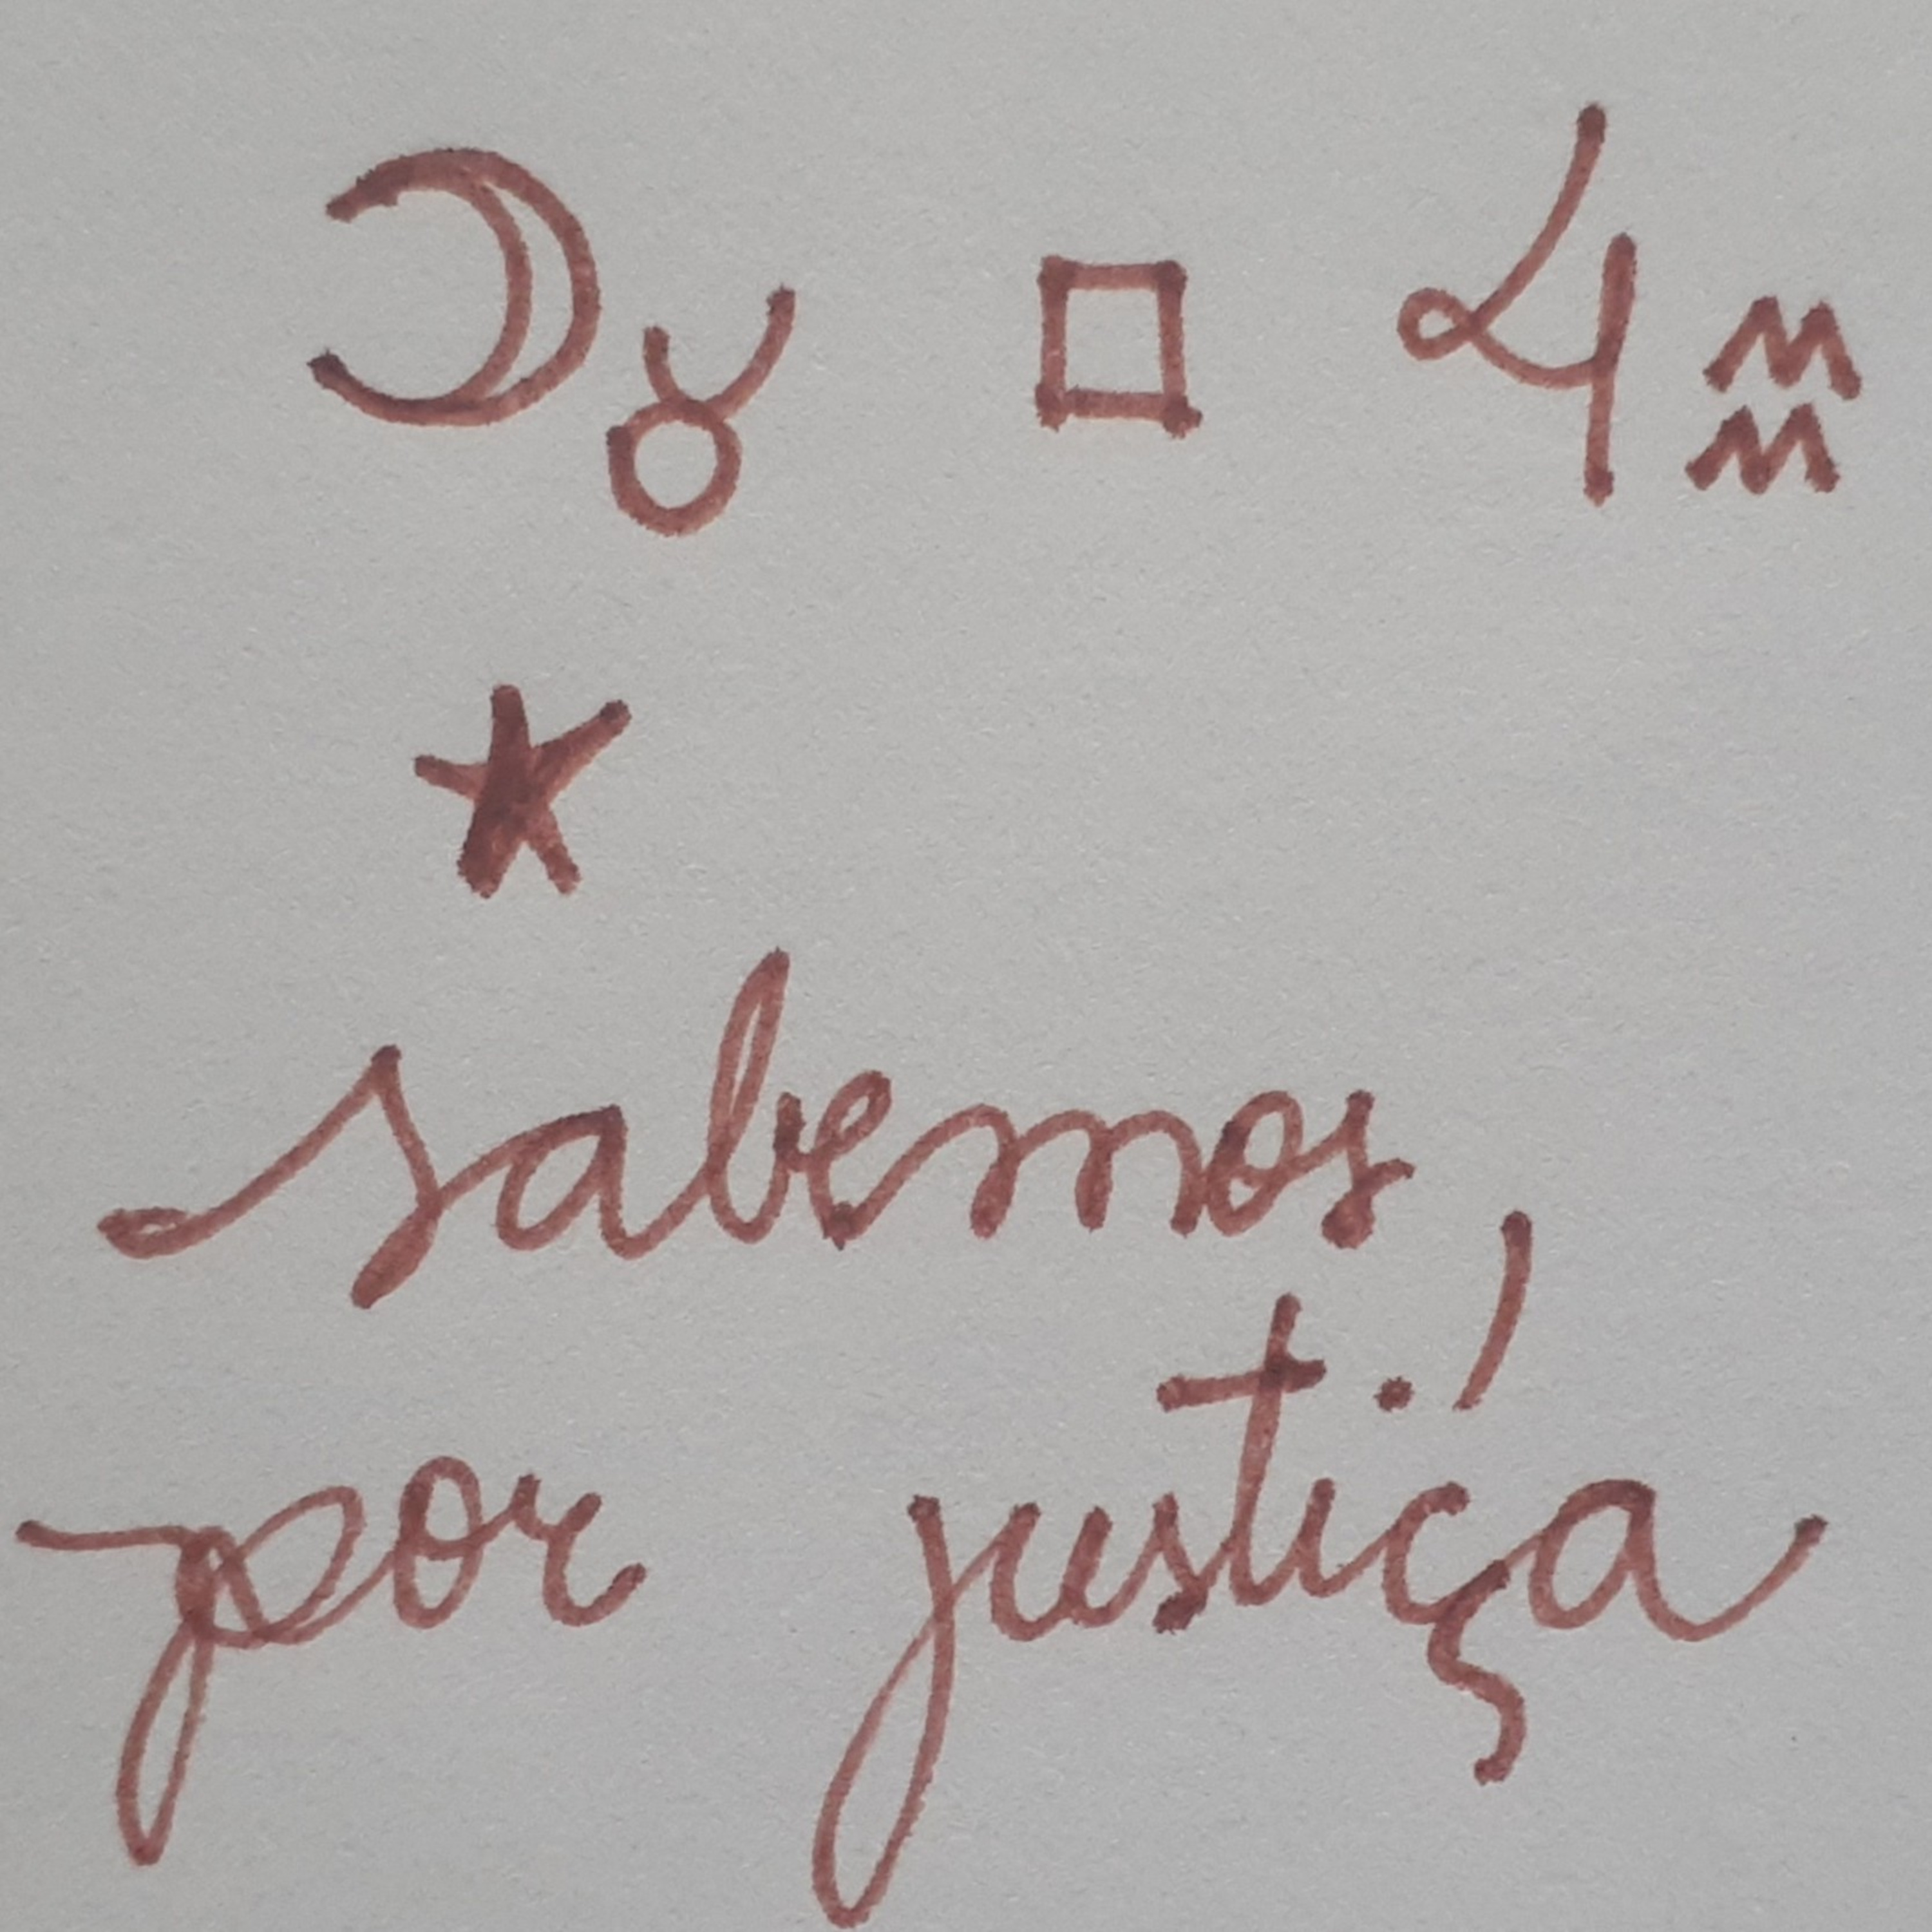 ☽♉ □ ♃♒
*
sabemos,
por justiça